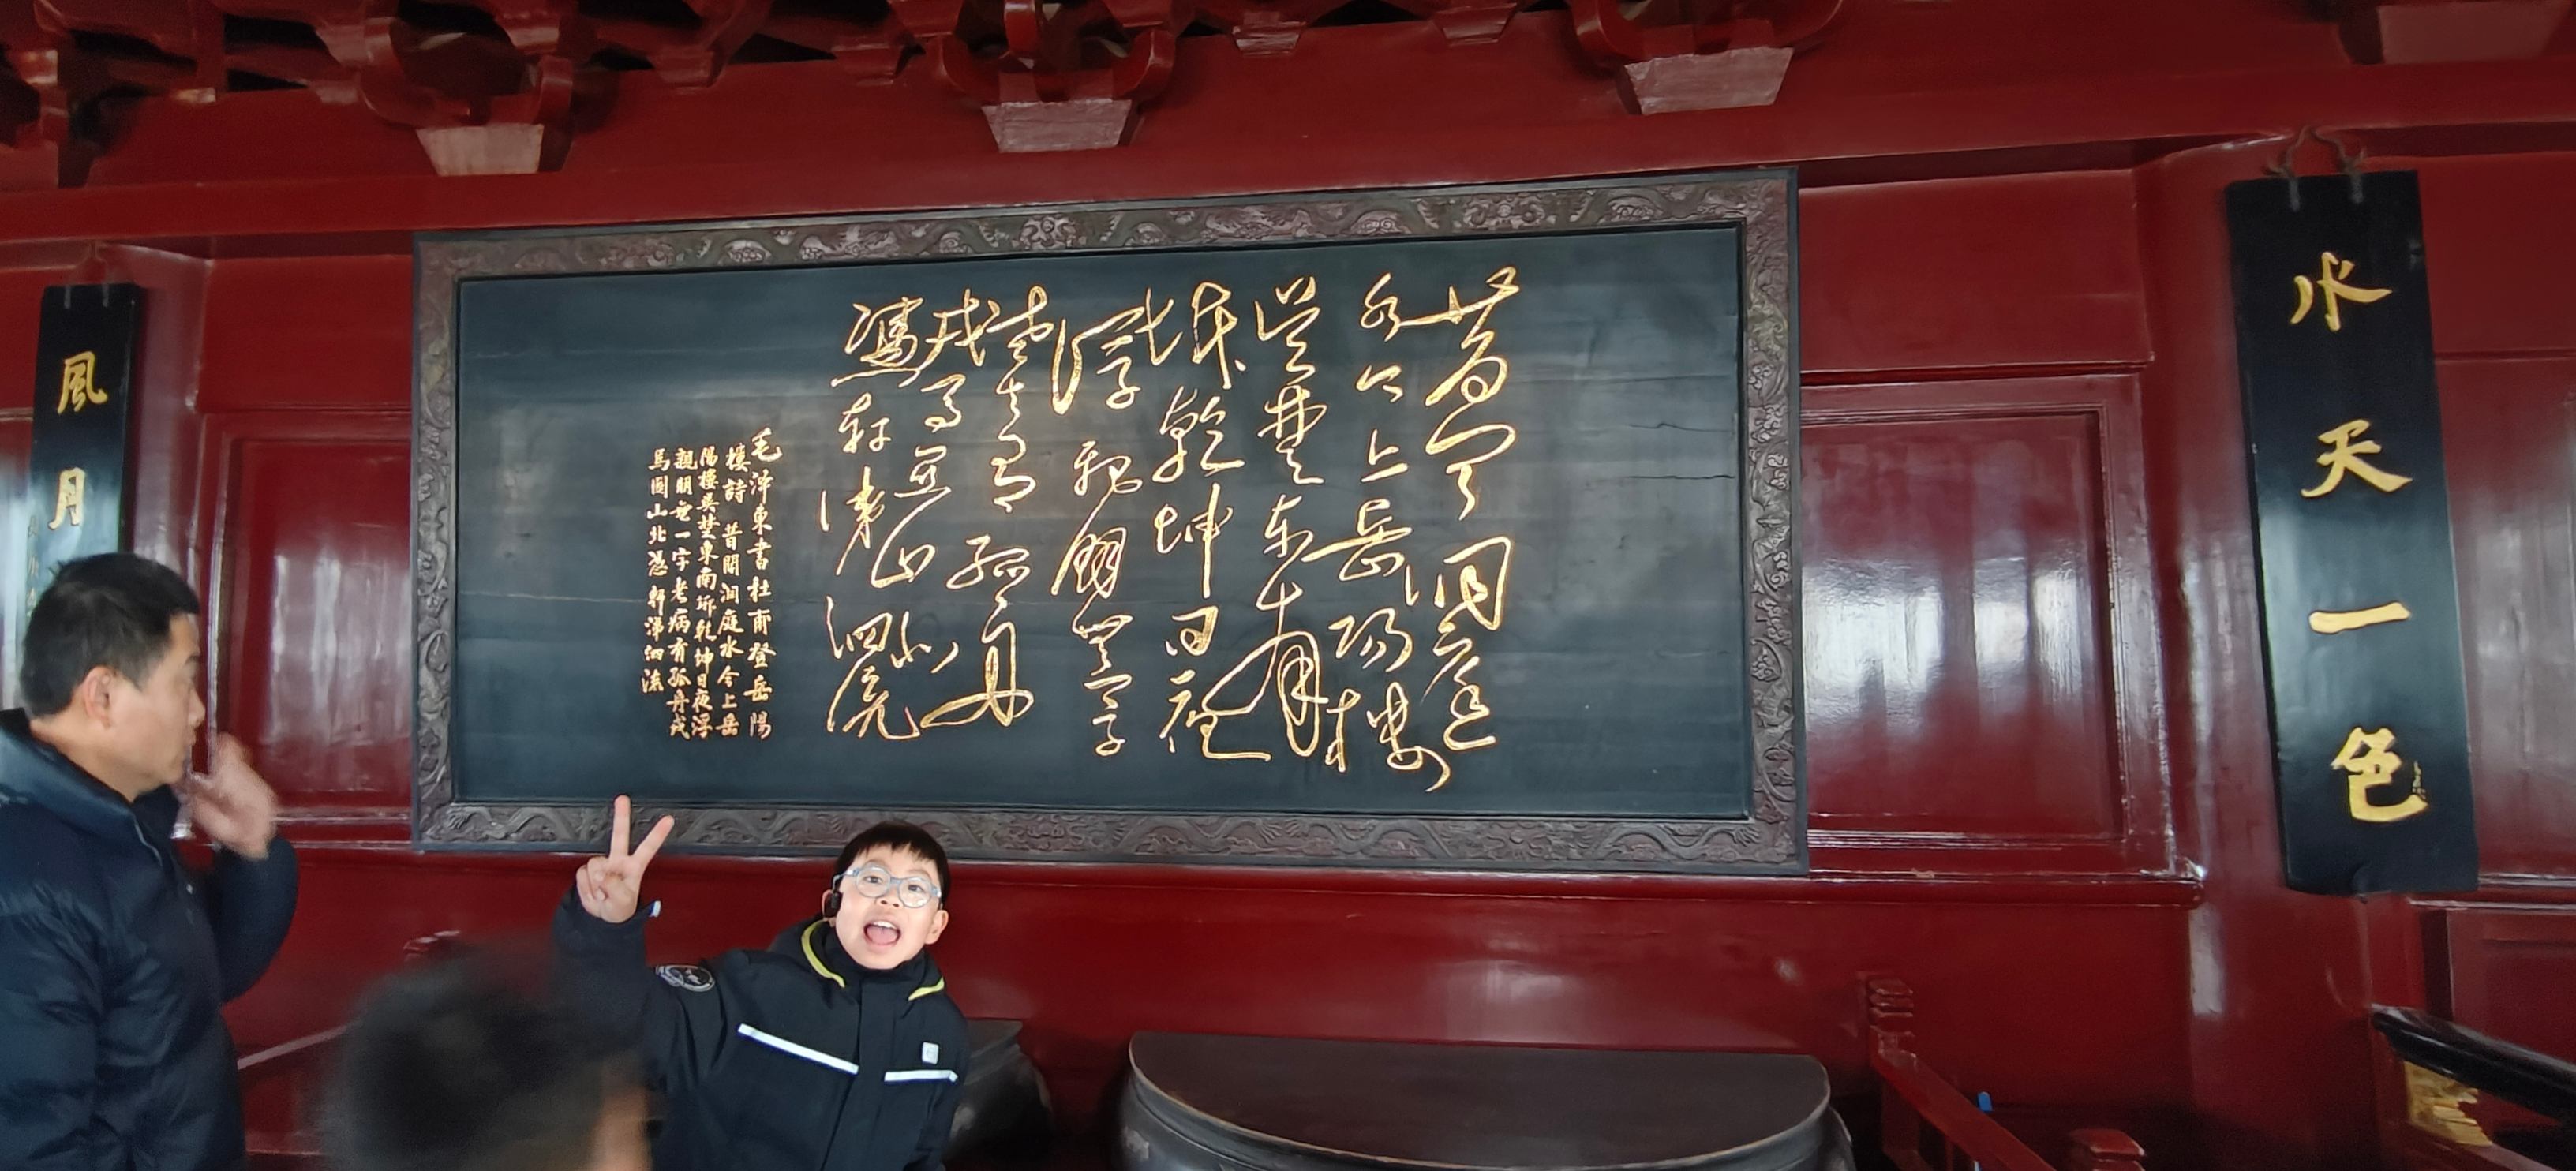 水天一色
昔聞洞庭
水今上岳陽樓
吴楚东南
坼乾坤日夜
浮親朋無一字
老去有孤舟
戎馬關山北
憑軒涕泗流
毛澤東書杜甫登岳陽
樓詩 昔聞洞庭水今上岳
陽樓吳楚東南坼乾坤日夜浮
親朋無一字老病有孤舟戎
馬關山北憑軒涕泗流
風月